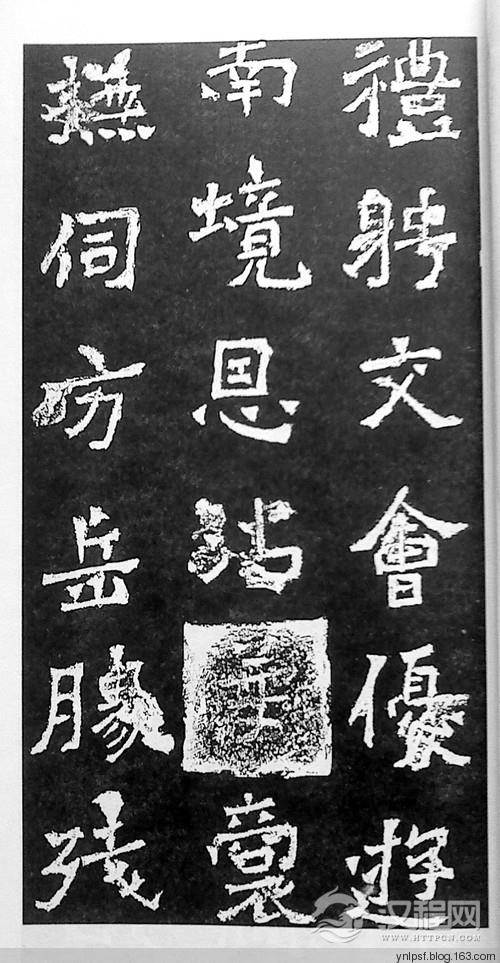 禮聘文會優遊
南境恩沾華裔
撫伺方岳勝残
汉程网
WWW.HTTPCN.COM
ynlpsf.blog.163.com